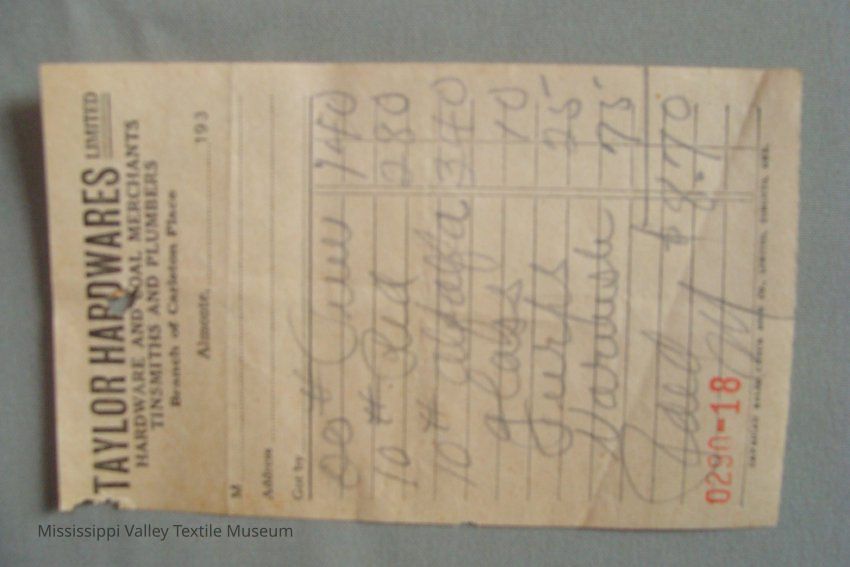 TAYLOR HARDWARES LIMITED
HARDWARE AND COAL MERCHANTS
TINSMITHS AND PLUMBERS
Branch of Carleton Place
Almonte, 193
M
Address
Got by
# 140
10 # Red 280
10 # Alfalfa 340
Glass 10
Turps 25
Varnish 75
$ 8.70
Paid
0290-18
Mississippi Valley Textile Museum